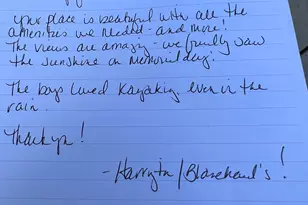 your place is beautiful with all the
amenities we needed - and more!
The views are amazing - we finally saw
the sunshine on memorial day!
The boys loved Kayaking, even in the
rain.
Thank you!
- Harrington/